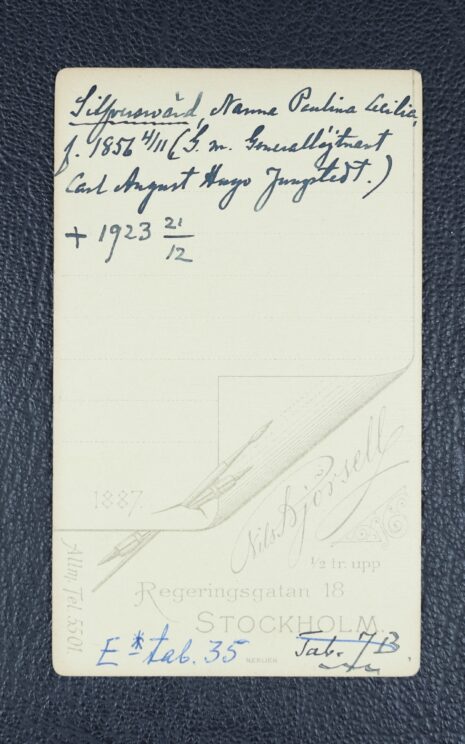 Silfversvärd, Nanna Paulina Cecilia,
f. 1856 4/11 (G. m. Generallöjtnant
Carl August Hugo Jungstedt.)
+ 1923 21/12
1887.
Nils Björsell
½ tr. upp
Allm. Tel. 5501.
Regeringsgatan 18
STOCKHOLM.
E* tab. 35
Tab. 7B